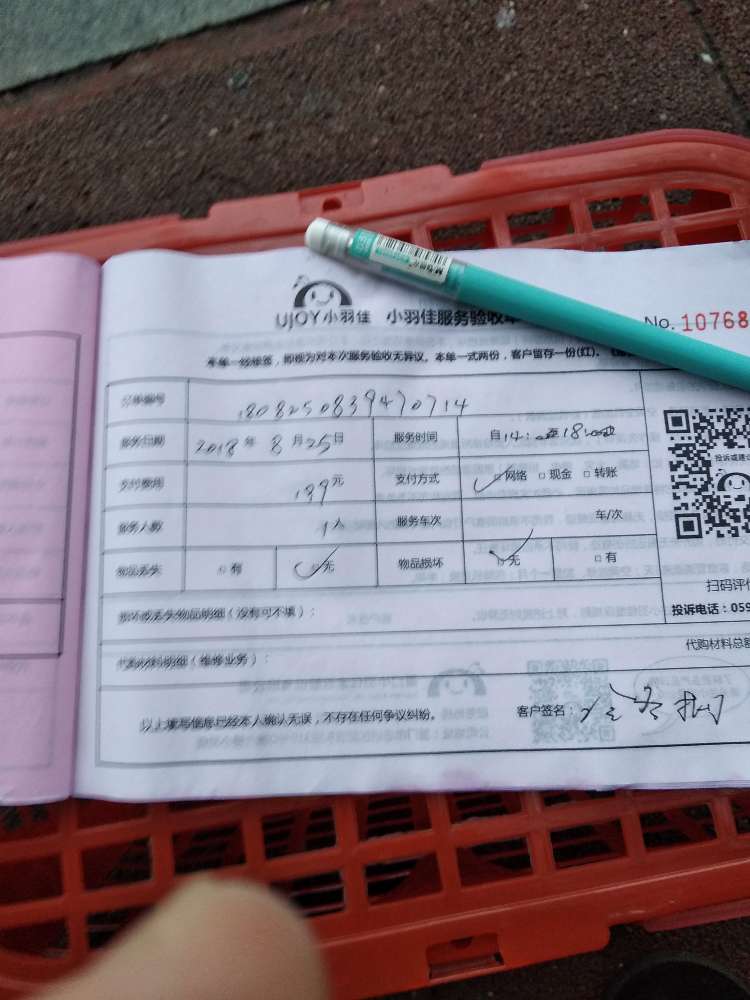 UJOY小羽佳 小羽佳服务验收单
No. 10768
本单一经签, 即视为对本次服务验收无异议。本单一式两份, 客户留存一份(红)。
投诉或建
订单编号 1808250839470714
服务日期 2018年8月25日 服务时间 自14: 至18
支付费用 199元 支付方式 网络 现金 转账
服务人数 1人 服务车次 车/次
物品丢失 有 无 物品损坏 无 有
扫码评
投诉电话:059
损坏或丢失物品明细(没有可不填):
代购材料总
代购材料明细(维修业务):
以上填写信息已经本人确认无误,不存在任何争议纠纷。 客户签名: